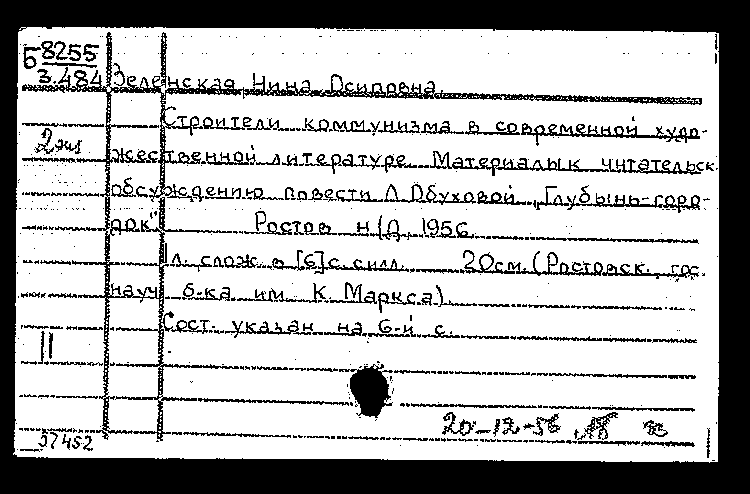 Б 8255
3.484
Зеленская, Нина Осиповна.
Строители коммунизма в современной худо-
2 экз
жественной литературе. Материалы к читательск.
обсуждению повести Л. Обуховой „Глубынь-горо-
док".  Ростов н/Д, 1956.
1 л. слож. в [6] с. с илл.  20 см. (Ростовск. гос.
науч. б-ка им. К. Маркса).
Сост. указан на 6-й с.
II
20-12-56
37452